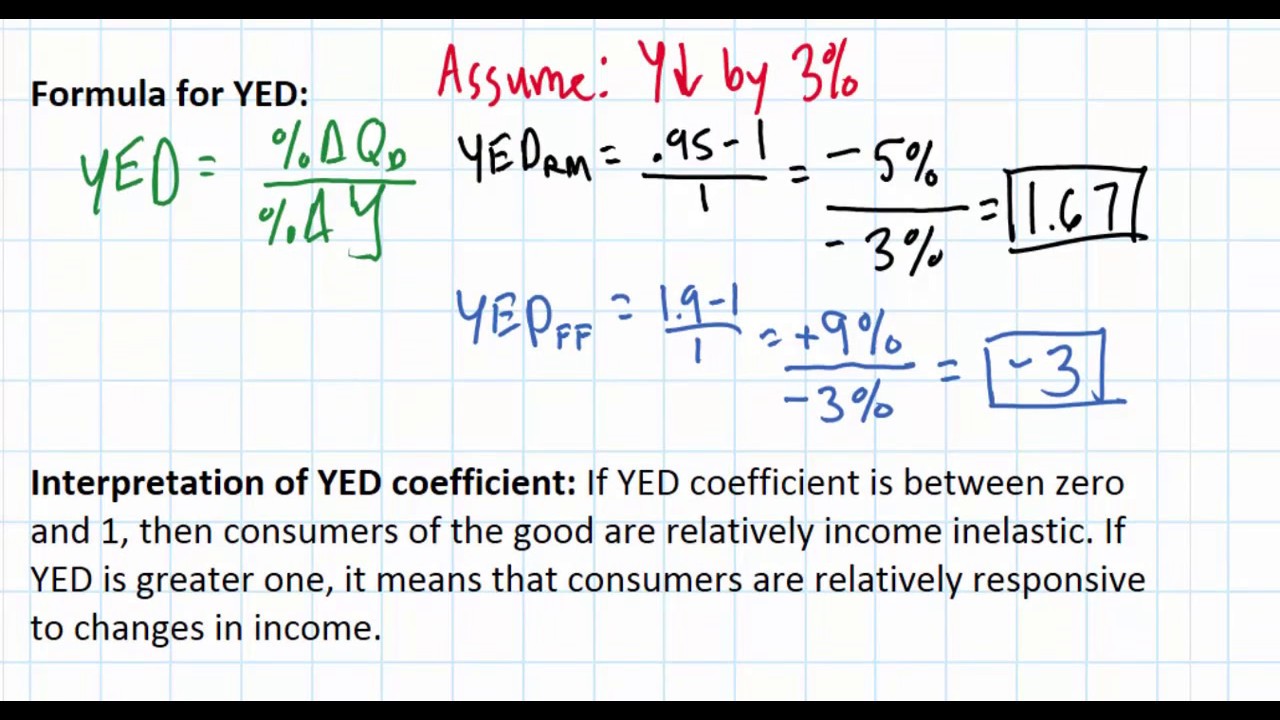 Assume: Y↓ by 3%
Formula for YED:
YED = %ΔQD / %ΔY
YEDRM = .95-1 / 1 = -5% / -3% = 1.67
YEDFF = 1.9-1 / 1 = +9% / -3% = -3
Interpretation of YED coefficient: If YED coefficient is between zero
and 1, then consumers of the good are relatively income inelastic. If
YED is greater one, it means that consumers are relatively responsive
to changes in income.